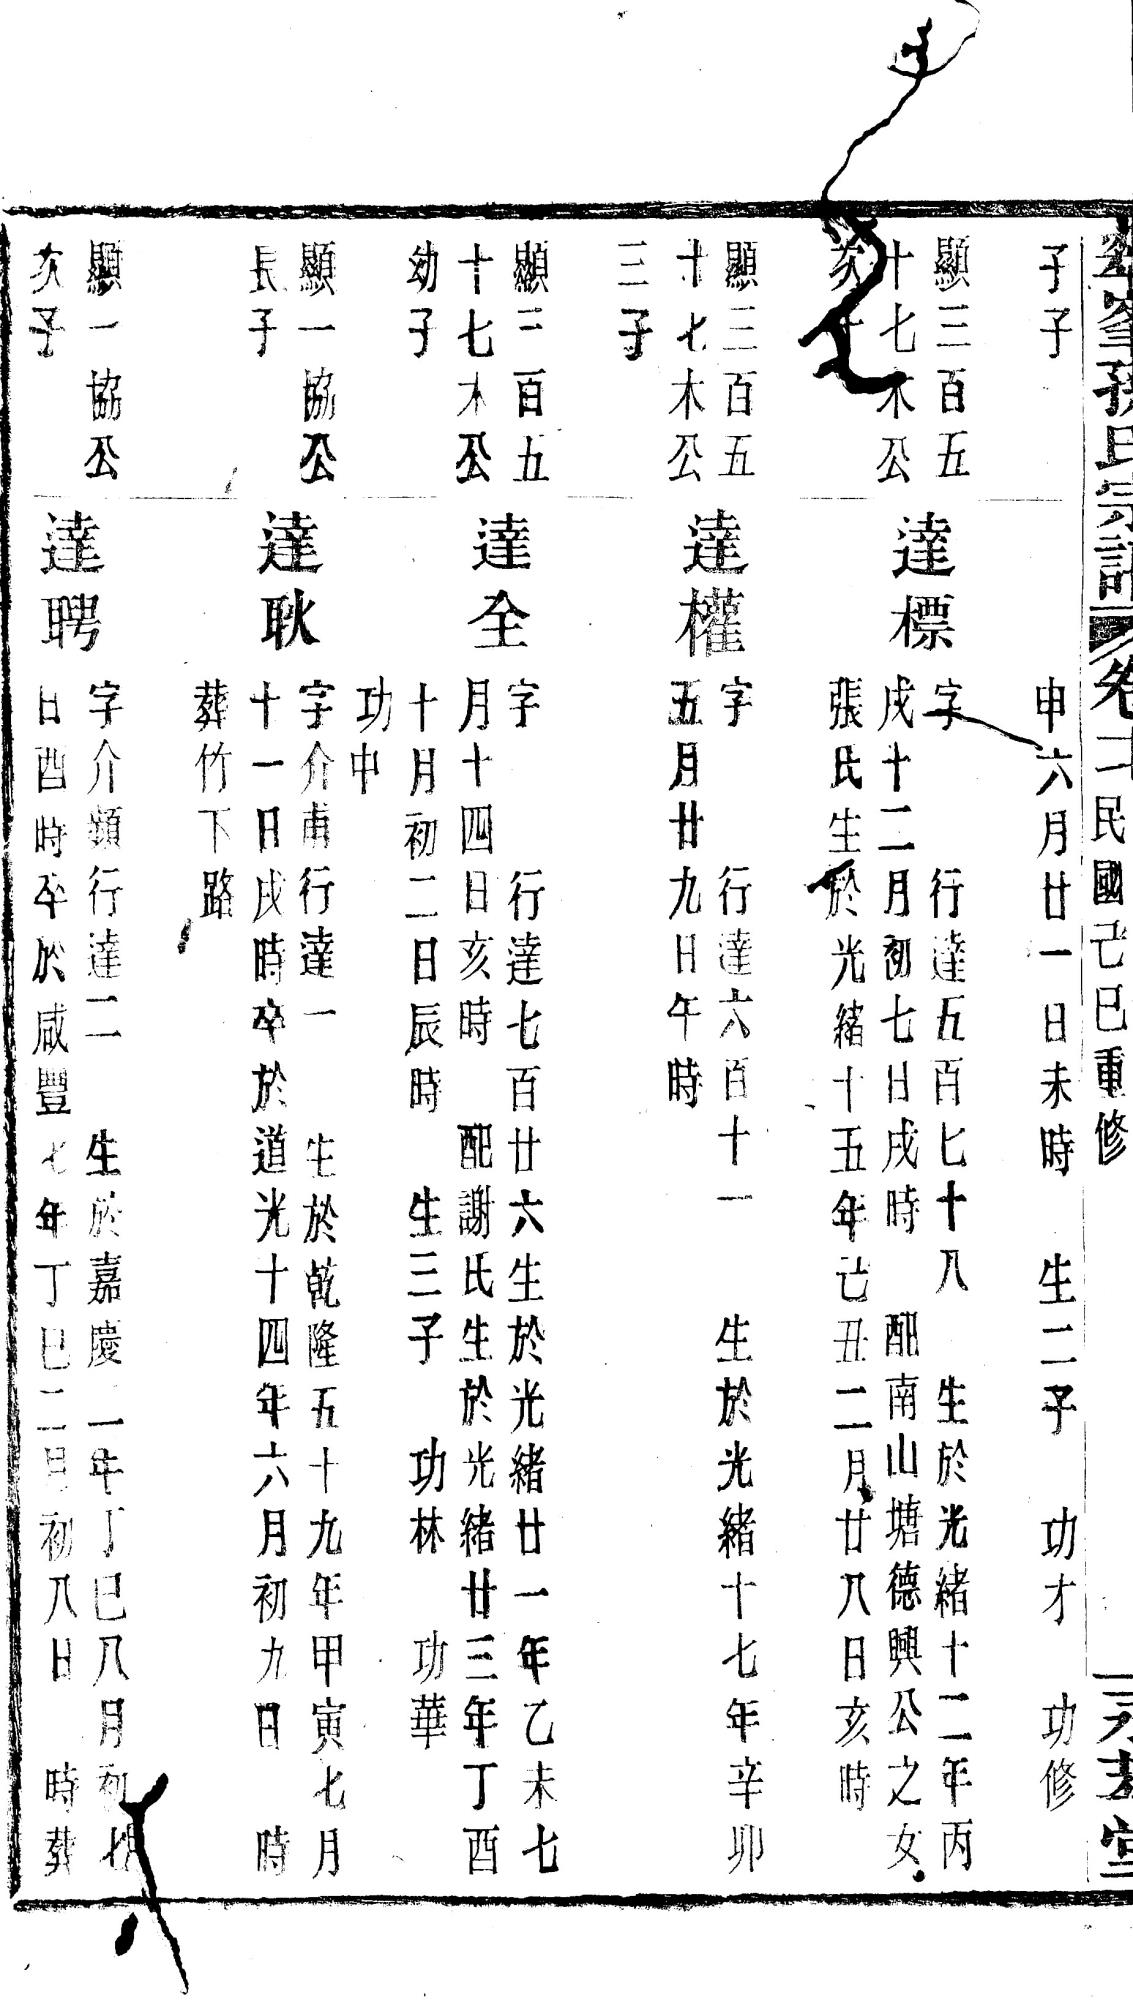 峯孫氏宗譜 卷 民國己巳重修
子子
申六月廿一日未時 生二子 功才 功修
顯三百五
十七木公
次子
達標
字 行達五百七十八 生於光緒十二年丙
戌十二月初七日戌時 配南山塘德興公之女
張氏生於光緒十五年己丑二月廿八日亥時
顯三百五
十七木公
三子
達權
字 行達六百十一 生於光緒十七年辛卯
五月廿九日午時
顯三百五
十七木公
幼子
達全
字 行達七百廿六生於光緒廿一年乙未七
月十四日亥時 配謝氏生於光緒廿三年丁酉
十月初二日辰時 生三子 功林 功華
功中
顯一協公
長子
達耿
字介甫行達一 生於乾隆五十九年甲寅七月
十一日戌時卒於道光十四年六月初九日 時
葬竹下路
顯一協公
次子
達聘
字介頻行達二 生於嘉慶二年丁巳八月初
日酉時卒於咸豐七年丁巳二月初八日 時葬